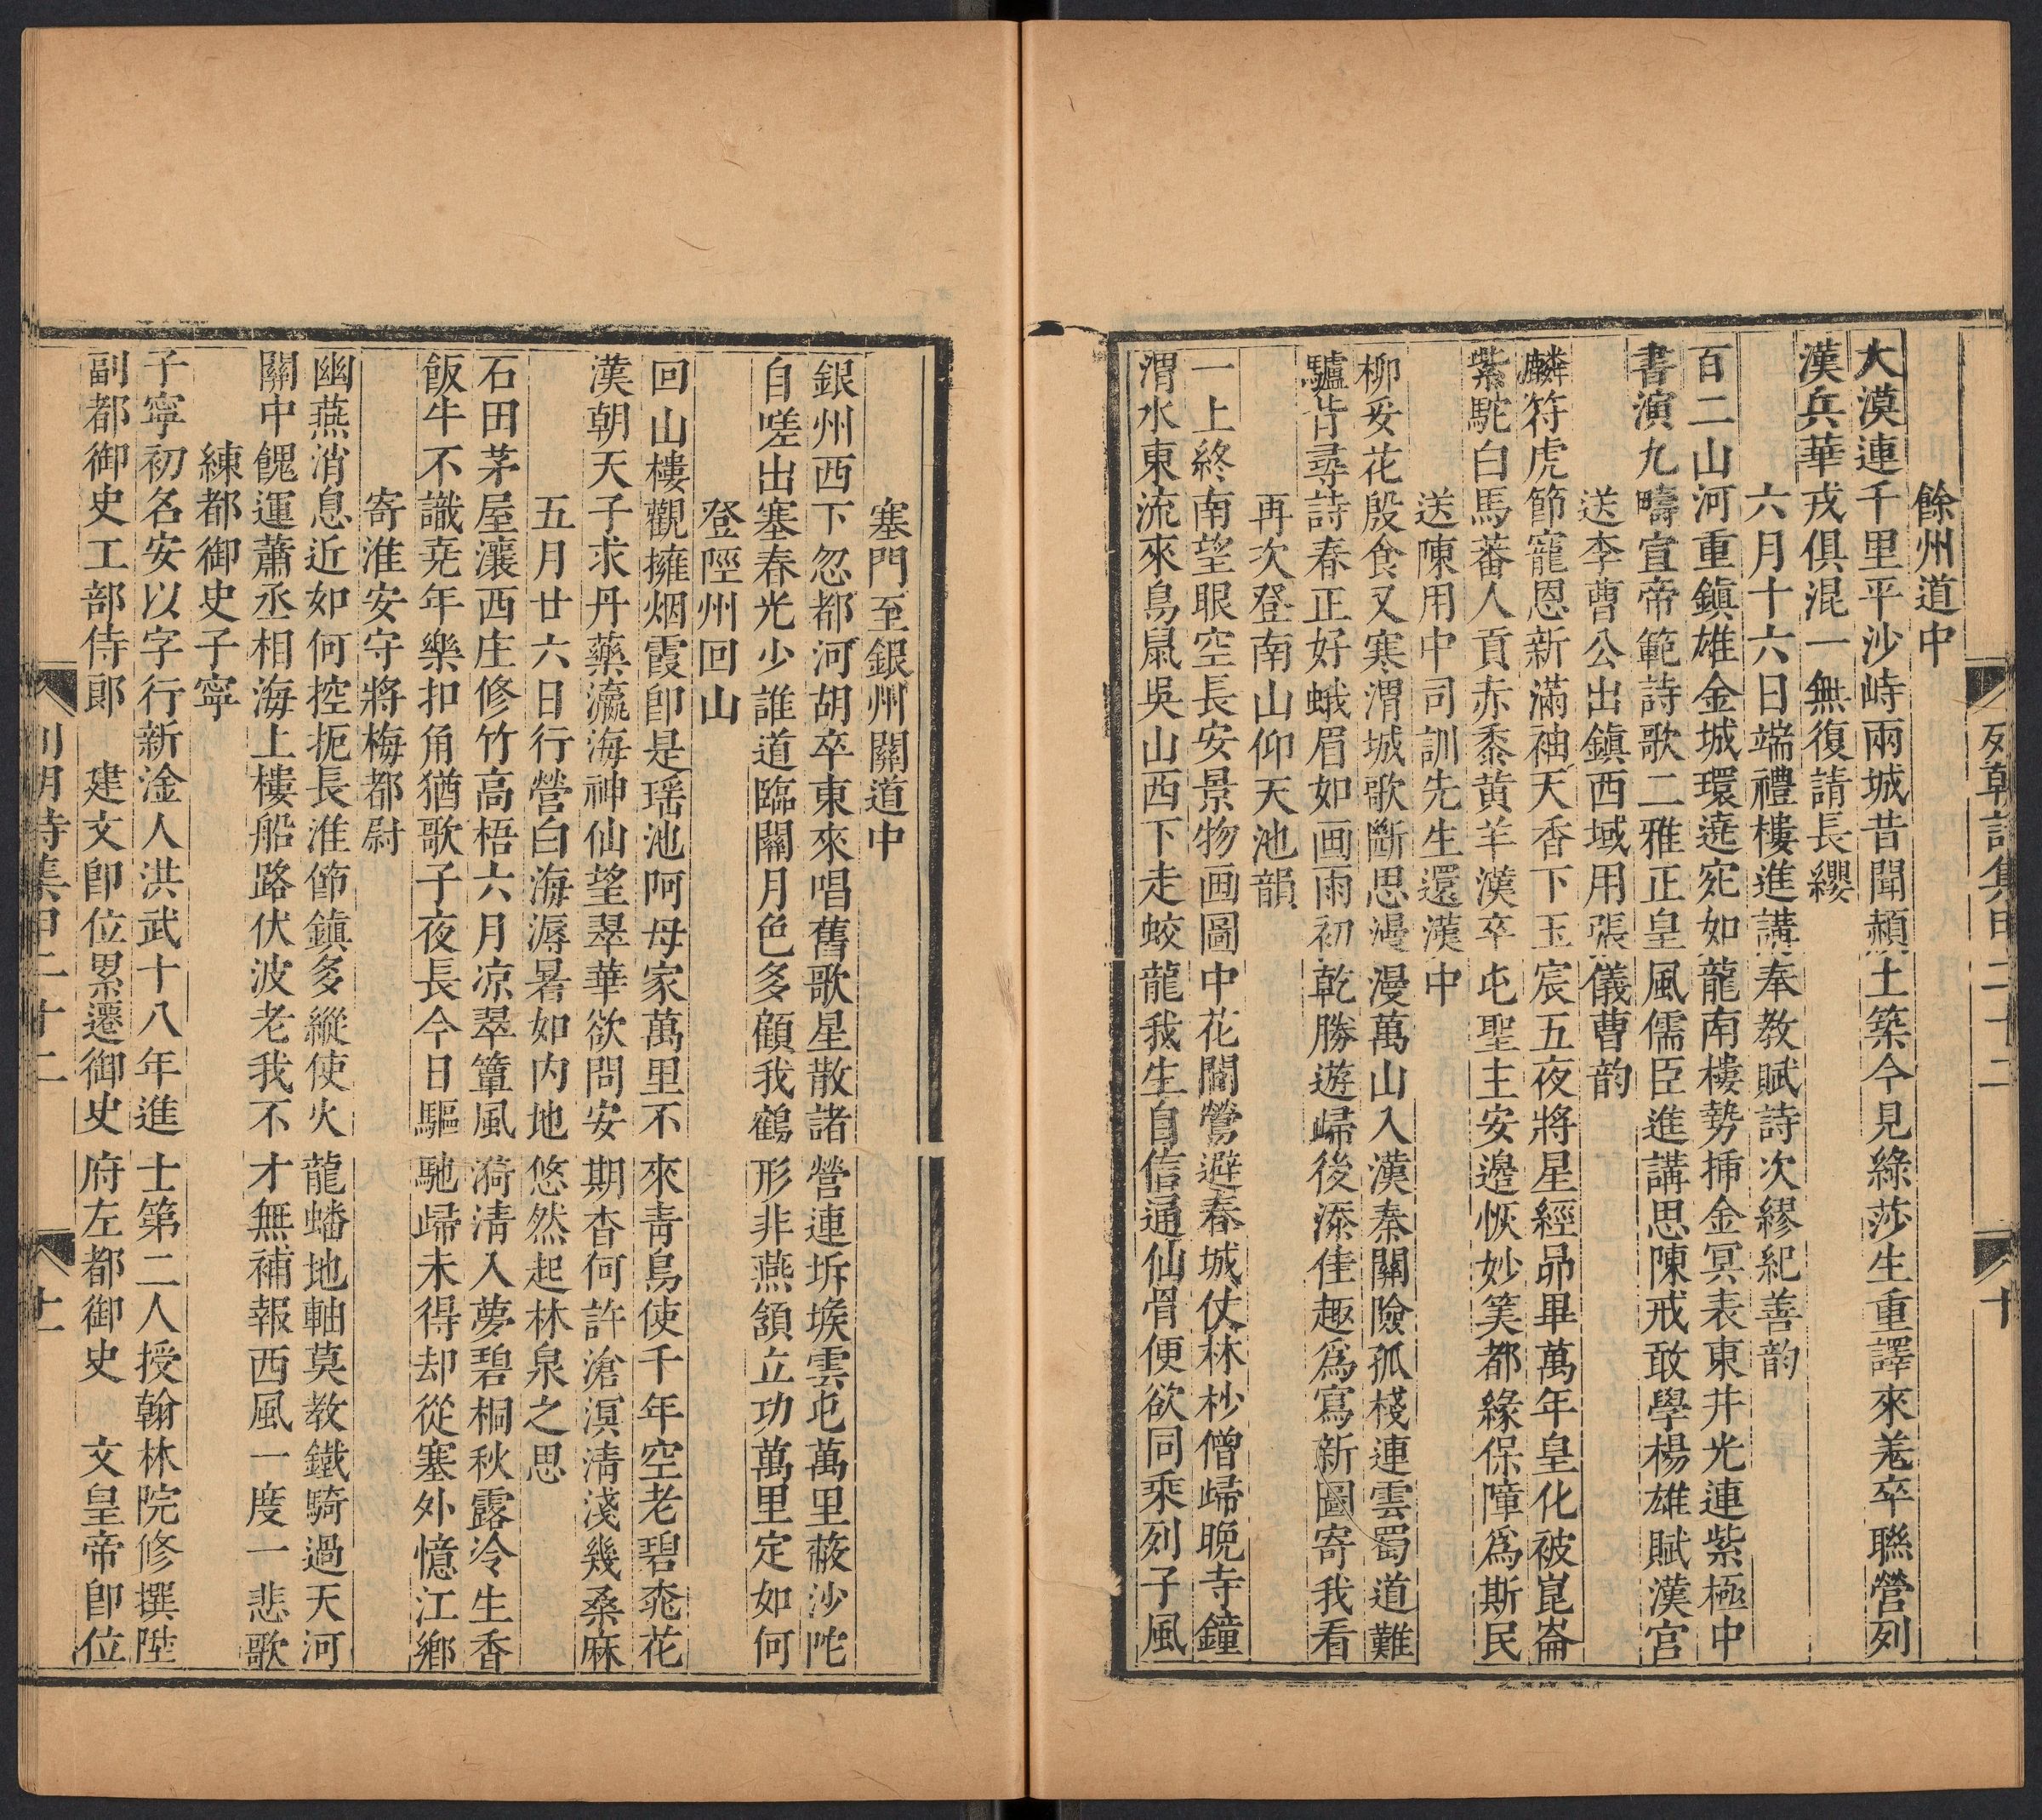 列朝詩集甲二十二 十
餘州道中
大漠連千里平沙峙兩城昔聞頳土築今見綠莎生重譯來羗卒聯營列
漢兵華戎俱混一無復請長纓
六月十六日端禮樓進講奉教賦詩次繆紀善韵
百二山河重鎮雄金城環遶宛如龍南樓勢揷金冥表東井光連紫極中
書演九疇宣帝範詩歌二雅正皇風儒臣進講思陳戒敢學楊雄賦漢宫
送李曹公出鎮西域用張儀曹韵
麟符虎節寵恩新滿袖天香下玉宸五夜將星經昴畢萬年皇化被崑崙
紫駝白馬蕃人貢赤黍黄羊漢卒屯聖主安邊恢妙筭都緣保障爲斯民
送陳用中司訓先生還漢中
柳妥花殷食又寒渭城歌斷思漫漫萬山入漢秦關險孤棧連雲蜀道難
驢背尋詩春正好蛾眉如画雨初乾勝遊歸後添佳趣爲寫新圖寄我看
再次登南山仰天池韻
一上終南望眼空長安景物画圖中花闗鶯避春城仗林杪僧歸晚寺鐘
渭水東流來鳥鼠吳山西下走蛟龍我生自信通仙骨便欲同乘列子風
塞門至銀州關道中
銀州西下忽都河胡卒東來唱舊歌星散諸營連坼堠雲屯萬里蔽沙陀
自嗟出塞春光少誰道臨關月色多顧我鶴形非燕頷立功萬里定如何
登陘州回山
回山樓觀擁烟霞卽是瑶池阿母家萬里不來靑鳥使千年空老碧桃花
漢朝天子求丹藥瀛海神仙望翠華欲問安期杳何許滄溟淸淺幾桑麻
五月廿六日行營白海溽暑如内地悠然起林泉之思
石田茅屋瀼西庄修竹高梧六月凉翠簟風漪淸入夢碧桐秋露冷生香
飯牛不識堯年樂扣角猶歌子夜長今日驅馳歸未得却從塞外憶江鄉
寄淮安守將梅都尉
幽燕消息近如何控扼長淮節鎮多縱使火龍蟠地軸莫教鐵騎過天河
關中餽運蕭丞相海上樓船路伏波老我不才無補報西風一度一悲歌
練都御史子寧
子寧初名安以字行新淦人洪武十八年進士第二人授翰林院修撰陞
副都御史工部侍郎 建文卽位累遷御史府左都御史 文皇帝卽位
列朝詩集甲二十二 十一